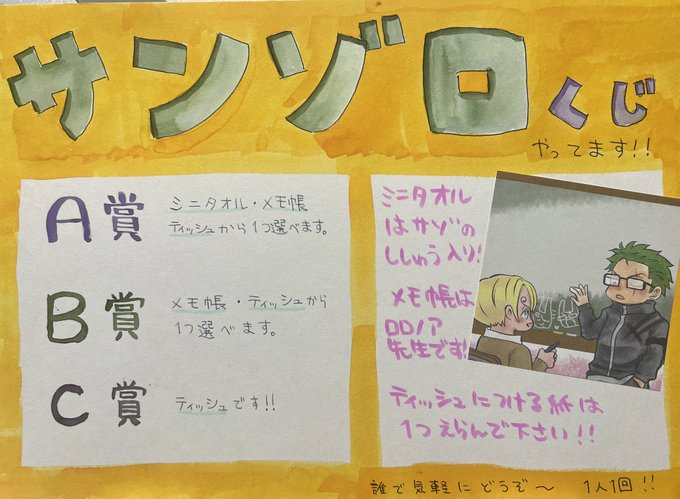 サンゾロくじ
やってます!!
A賞
ミニタオル・メモ帳
ティッシュから1つ選べます。
B賞
メモ帳・ティッシュから
1つ選べます。
C賞
ティッシュです!!
ミニタオル
はサゾの
ししゅう入り!
メモ帳は
ロロノア
先生です!
ティッシュにつける紙は
1つえらんで下さい!!
誰で気軽にどうぞ〜 1人1回!!